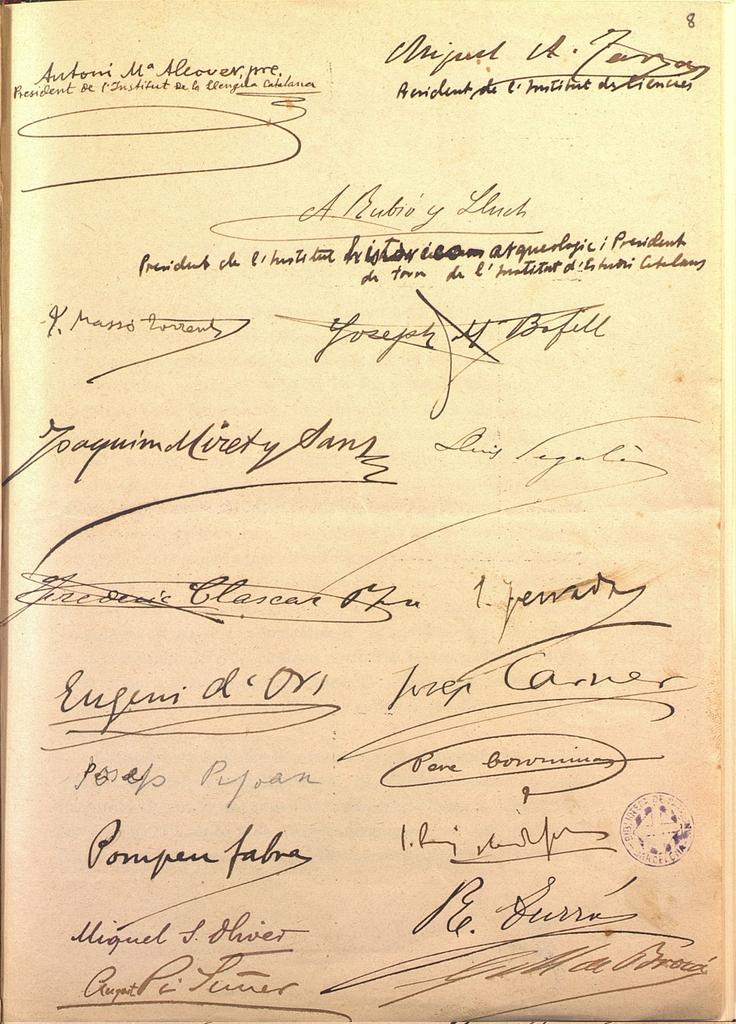 8
Antoni Mª Alcover, pre.
President de l'Institut de la Llengua Catalana
Miquel A.
President de l'Institut de Ciencies
A Rubió y Lluch
President de l'Institut historico arqueologic i President
de torn de l'Institut d'Estudis Catalans
J. Massó Torrents
Joseph Mª Bofill
Joaquim Miret y Sans
Lluis Segalá
Frederic Clascar Pre
Eugeni d'Ors
Josep Carner
Josep Pijoan
Pere Coromines
Pompeu Fabra
Miquel S. Oliver
R. Turró
August Pi Suñer
Gmo de Brocá